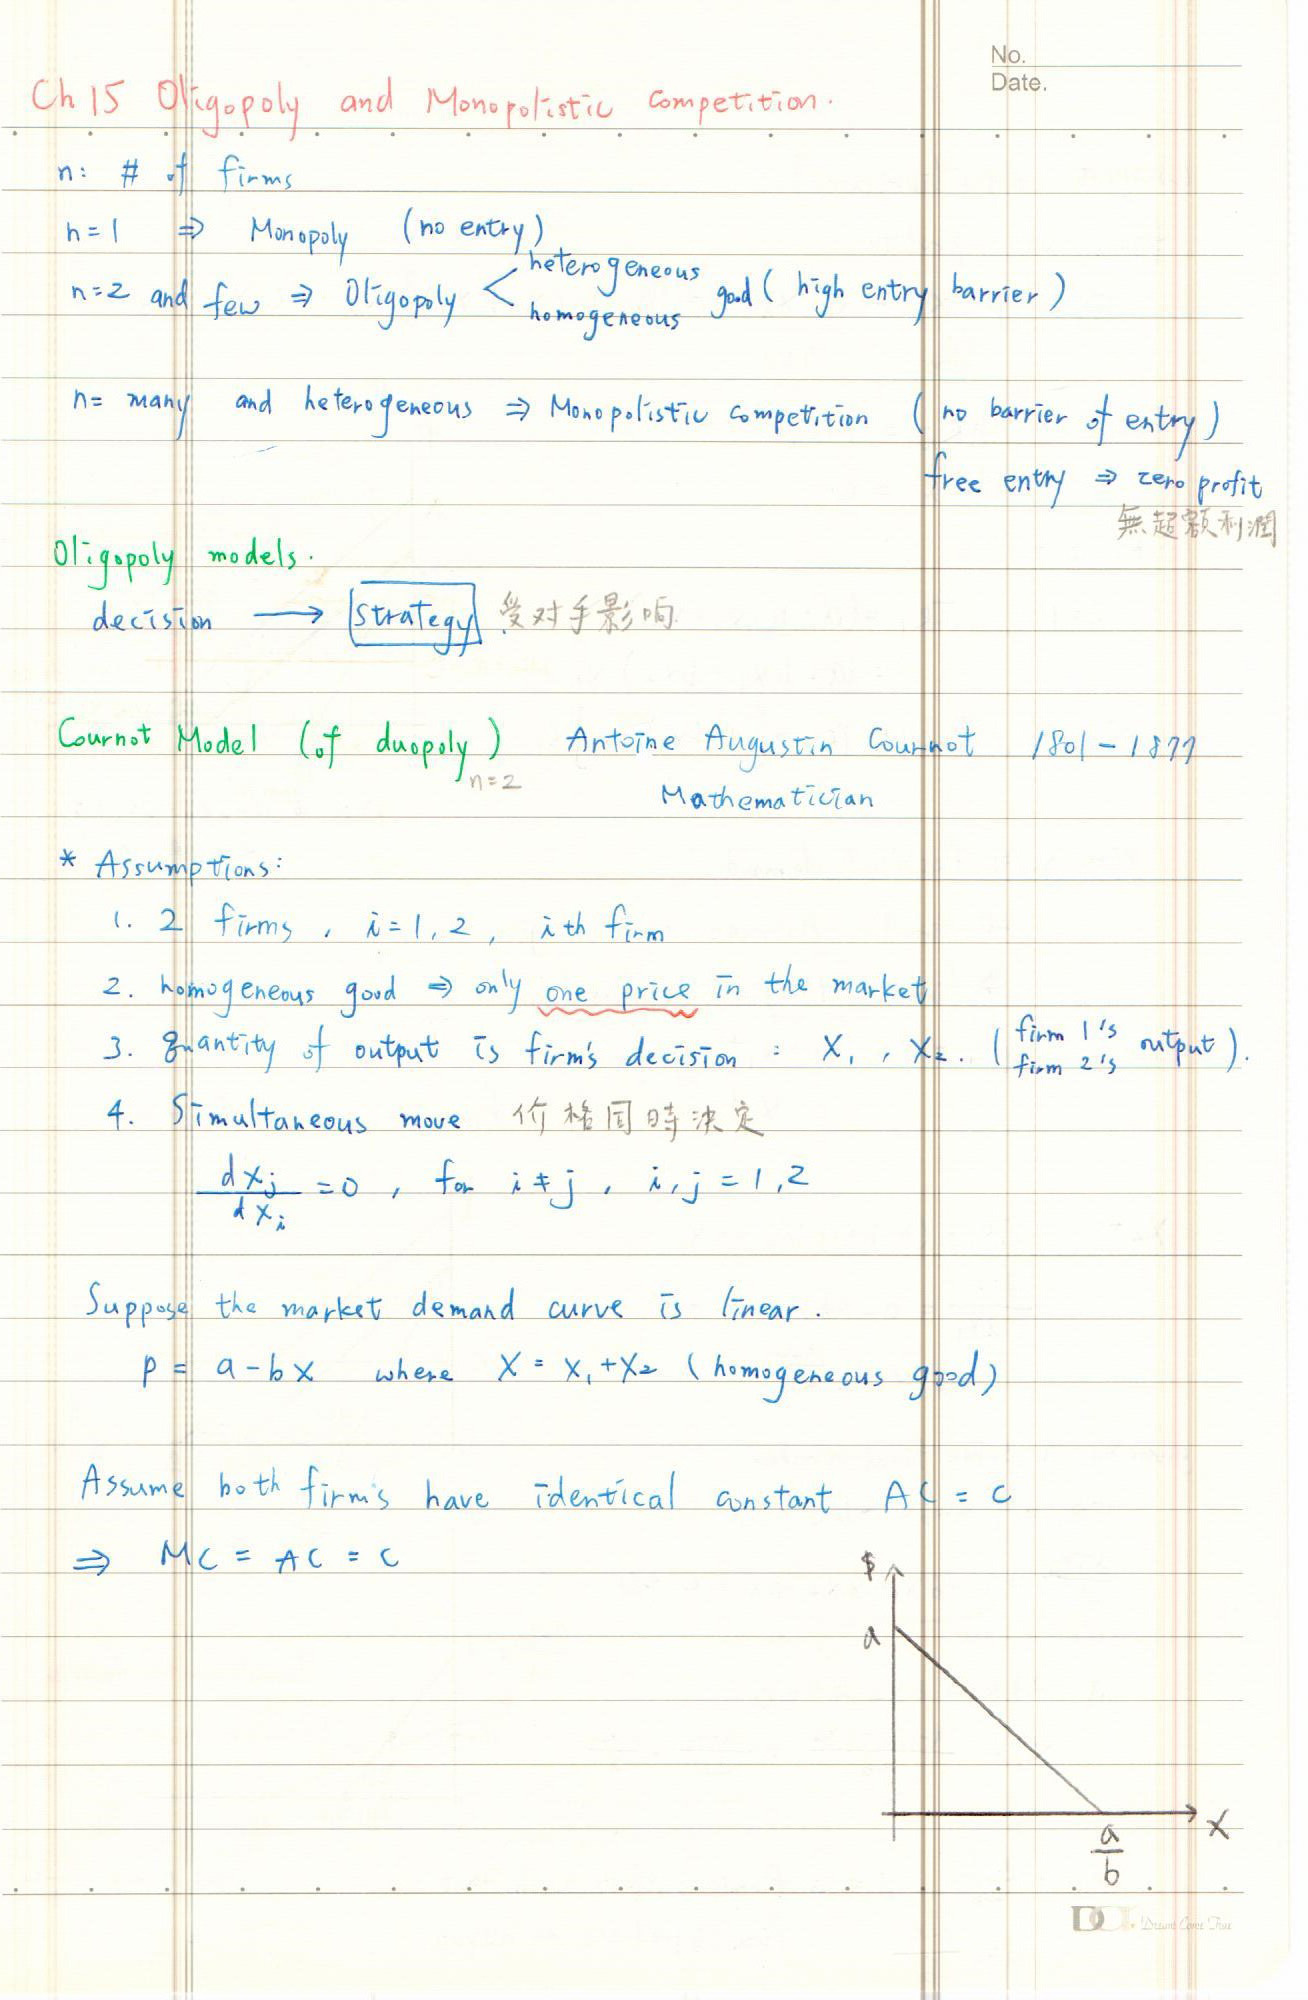 No.
Date.
Ch 15 Oligopoly and Monopolistic Competition.
n: # of firms
n=1 ⇒ Monopoly (no entry)
n=2 and few ⇒ Oligopoly < heterogeneous homogeneous good (high entry barrier)
n= many and heterogeneous ⇒ Monopolistic competition (no barrier of entry)
free entry ⇒ zero profit
無超額利潤
Oligopoly models.
decision ⟶ strategy 受对手影响
Cournot Model (of duopoly) Antoine Augustin Cournot 1801-1877
n=2
Mathematician
* Assumptions:
1. 2 firms, i=1,2, ith firm
2. homogeneous good ⇒ only one price in the market
3. quantity of output is firm's decision: X₁, X₂. (firm 1's firm 2's output).
4. Simultaneous move 价格同時決定
dxj/dxi =0, for i≠j, i,j=1,2
Suppose the market demand curve is linear.
p = a-bx where X = X₁+X₂ (homogeneous good)
Assume both firm's have identical constant AC = c
⇒ MC = AC = c
$
a
X
a/b
Dream Come True